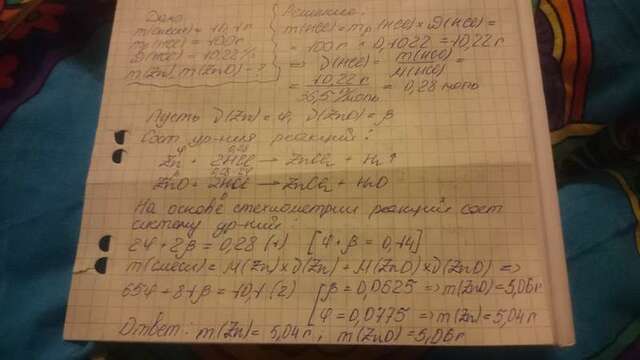 Дано:
m(смеси) = 10,1 г
mр(HCl) = 100 г
ω(HCl) = 10,22%
m(Zn), m(ZnO) - ?
Решение:
m(HCl) = mр(HCl) × ω(HCl) =
= 100 г × 0,1022 = 10,22 г
=> ν(HCl) = m(HCl) / M(HCl) =
= 10,22 г / 36,5 г/моль = 0,28 моль
Пусть ν(Zn) = φ, ν(ZnO) = β
Сост. ур-ния реакций:
φ 0,28
Zn + 2HCl → ZnCl₂ + H₂↑
ZnO + 2HCl → ZnCl₂ + H₂O
На основе стехиометрии реакций сост
систему ур-ний:
2φ + 2β = 0,28 (1) [φ + β = 0,14]
m(смеси) = M(Zn) × ν(Zn) + M(ZnO) × ν(ZnO) =>
65φ + 81β = 10,1 (2) [β = 0,0625 => m(ZnO) = 5,06 г
φ = 0,0775 => m(Zn) = 5,04 г
Ответ: m(Zn) = 5,04 г; m(ZnO) = 5,06 г